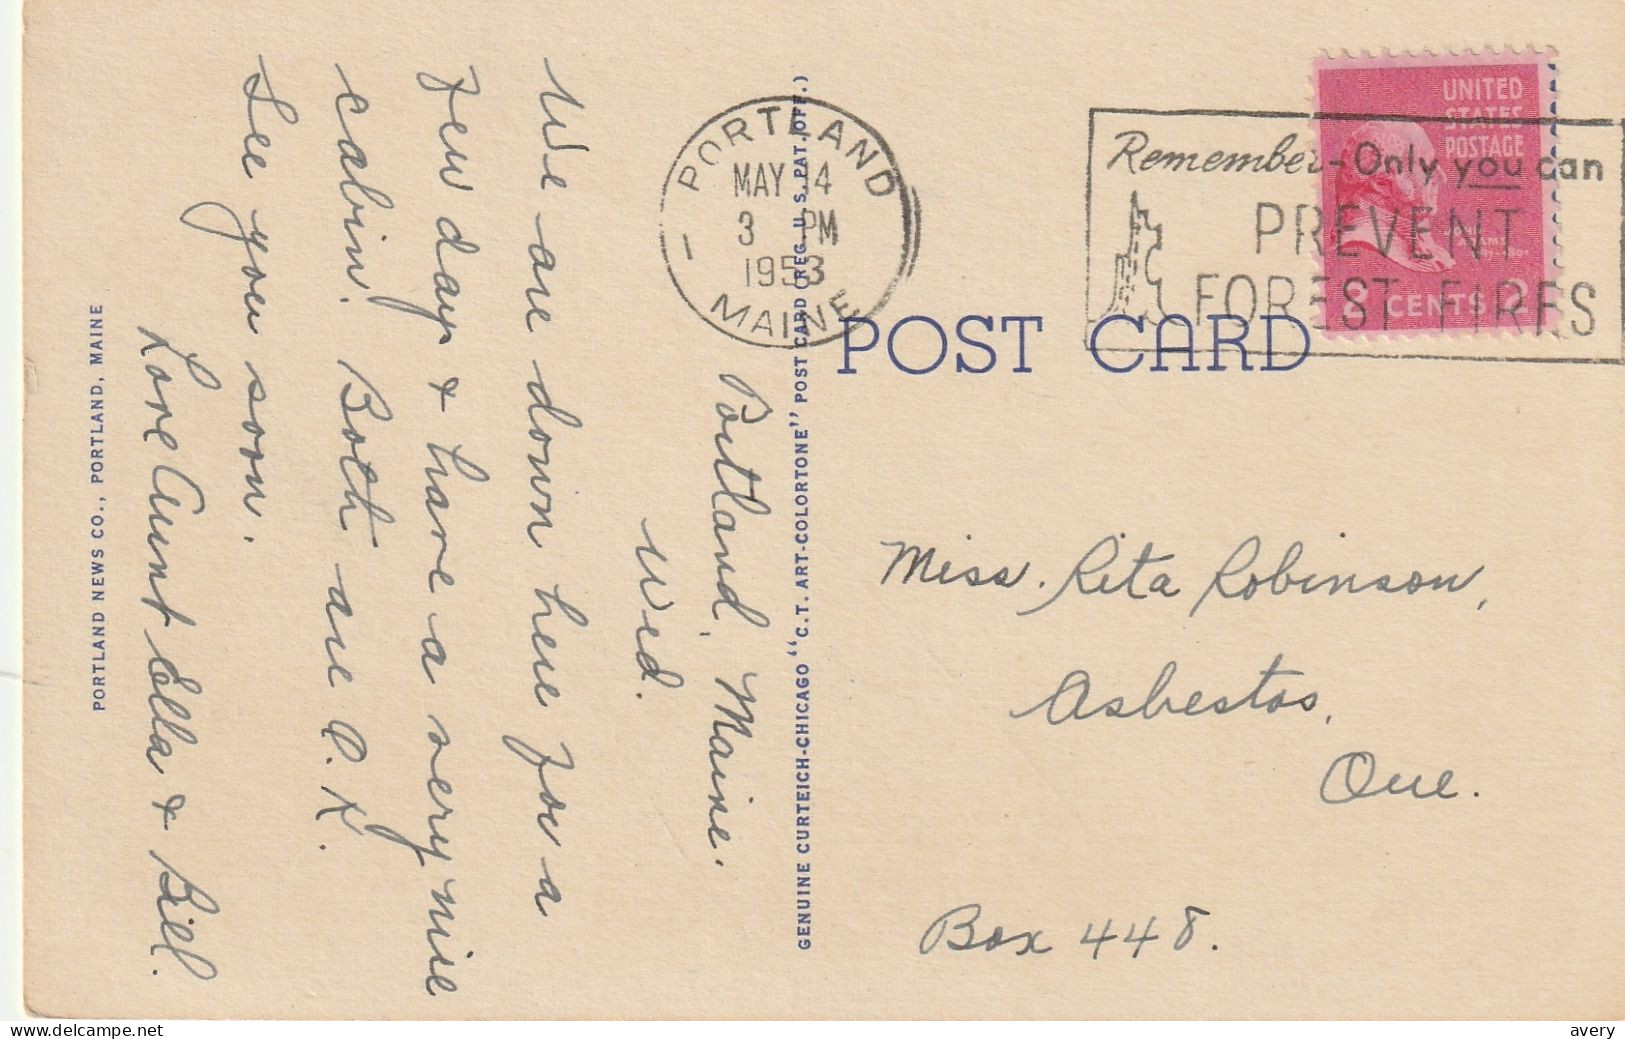 PORTLAND
MAY 4
3 PM
1953
MAINE
Remember-Only you can
PREVENT
FOREST FIRES
UNITED
STATES
POSTAGE
JOHN
ADAMS
2 CENTS 2
POST CARD
Portland, Maine.
Wed.
We are down here for a
few days & have a very nice
cabin. Both are O.K.
See you soon.
Love Aunt Ella & Bill.
PORTLAND NEWS CO., PORTLAND, MAINE
GENUINE CURTEICH-CHICAGO "C.T. ART-COLORTONE" POST CARD (REG. U.S. PAT. OFF.)
Miss. Rita Robinson,
Asbestos,
Que.
Box 448.
avery
www.delcampe.net